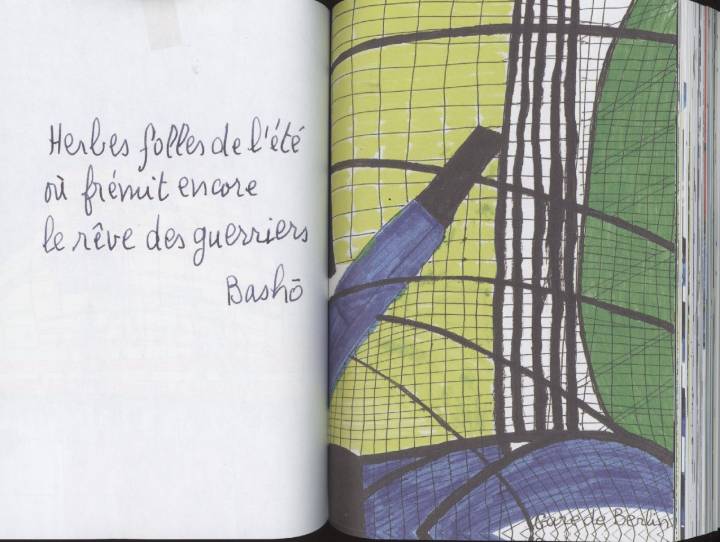 Herbes folles de l'été
où frémit encore
le rêve des guerriers
Bashō
Gare de Berlin